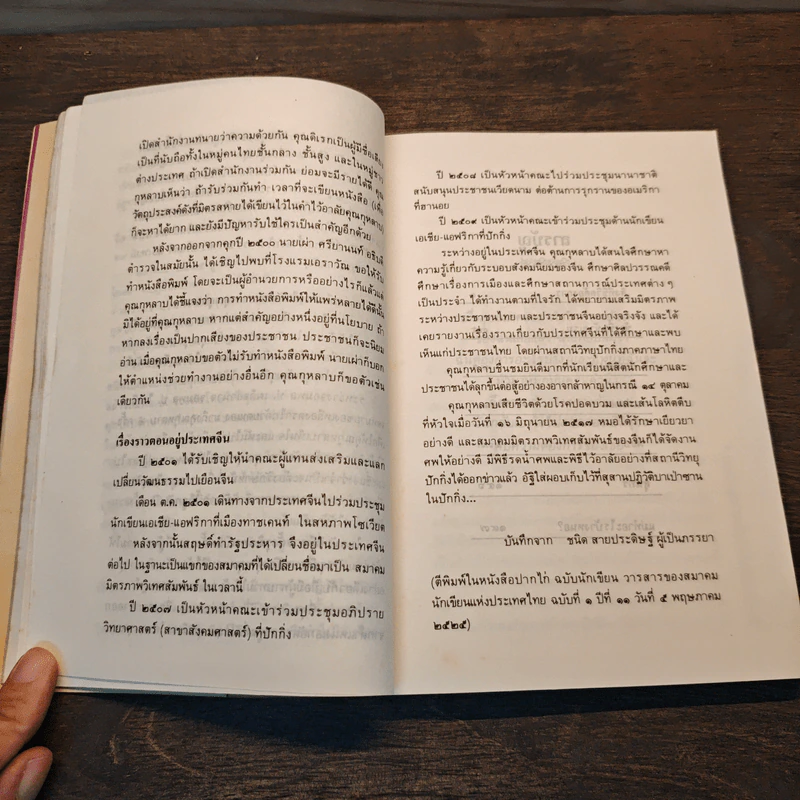 เปิดสำนักงานทนายว่าความด้วยกัน คุณดิเรกเป็นผู้มีชื่อเสียง
เป็นที่นับถือทั้งในหมู่คนไทยชั้นกลาง ชั้นสูง และในหมู่ชาว
ต่างประเทศ ถ้าเปิดสำนักงานร่วมกัน ย่อมจะมีรายได้ดี คุณ
กุหลาบเห็นว่า ถ้ารับร่วมกันทำ เวลาที่จะเขียนหนังสือ (เพื่อ
วัตถุประสงค์ดังที่มิตรสหายได้เขียนไว้ในคำไว้อาลัยคุณกุหลาบ)
ก็จะหาได้ยาก และยังมีปัญหารับใช้ใครเป็นสำคัญอีกด้วย
หลังจากออกจากคุกปี ๒๕๐๐ นายเผ่า ศรียานนท์ อธิบดี
ตำรวจในสมัยนั้น ได้เชิญไปพบที่โรงแรมเอราวัณ ขอให้รับ
ทำหนังสือพิมพ์ โดยจะเป็นผู้อำนวยการหรืออย่างไรก็แล้วแต่
คุณกุหลาบได้ชี้แจงว่า การทำหนังสือพิมพ์ให้แพร่หลายได้ดีนั้น
มิได้อยู่ที่คุณกุหลาบ หากแต่สำคัญอย่างหนึ่งอยู่ที่นโยบาย ถ้า
หากลงเรื่องเป็นปากเสียงของประชาชน ประชาชนก็จะนิยม
อ่าน เมื่อคุณกุหลาบขอตัวไม่รับทำหนังสือพิมพ์ นายเผ่าก็บอก
ให้ตำแหน่งช่วยทำงานอย่างอื่นอีก คุณกุหลาบก็ขอตัวเช่น
เดียวกัน
เรื่องราวตอนอยู่ประเทศจีน
ปี ๒๕๐๑ ได้รับเชิญให้นำคณะผู้แทนส่งเสริมและแลก
เปลี่ยนวัฒนธรรมไปเยือนจีน
เดือน ต.ค. ๒๕๐๑ เดินทางจากประเทศจีนไปร่วมประชุม
นักเขียนเอเชีย-แอฟริกาที่เมืองทาชเคนท์ ในสหภาพโซเวียต
หลังจากนั้นสฤษดิ์ทำรัฐประหาร จึงอยู่ในประเทศจีน
ต่อไป ในฐานะเป็นแขกของสมาคมที่ได้เปลี่ยนชื่อมาเป็น สมาคม
มิตรภาพวิเทศสัมพันธ์ ในเวลานี้
ปี ๒๕๐๗ เป็นหัวหน้าคณะเข้าร่วมประชุมอภิปราย
วิทยาศาสตร์ (สาขาสังคมศาสตร์) ที่ปักกิ่ง
ปี ๒๕๐๘ เป็นหัวหน้าคณะไปร่วมประชุมนานาชาติ
สนับสนุนประชาชนเวียดนาม ต่อต้านการรุกรานของอเมริกา
ที่ฮานอย
ปี ๒๕๐๙ เป็นหัวหน้าคณะเข้าร่วมประชุมด้านนักเขียน
เอเซีย-แอฟริกาที่ปักกิ่ง
ระหว่างอยู่ในประเทศจีน คุณกุหลาบได้สนใจศึกษาหา
ความรู้เกี่ยวกับระบอบสังคมนิยมของจีน ศึกษาศิลปวรรณคดี
ศึกษาเรื่องการเมืองและศึกษาสถานการณ์ประเทศต่าง ๆ
เป็นประจำ ได้ทำงานตามที่ใจรัก ได้พยายามเสริมมิตรภาพ
ระหว่างประชาชนไทย และประชาชนจีนอย่างจริงจัง และได้
เคยรายงานเรื่องราวเกี่ยวกับประเทศจีนที่ได้ศึกษาและพบ
เห็นแก่ประชาชนไทย โดยผ่านสถานีวิทยุปักกิ่งภาคภาษาไทย
คุณกุหลาบชื่นชมยินดีมากที่นักเรียนนิสิตนักศึกษาและ
ประชาชนได้ลุกขึ้นต่อสู้อย่างองอาจกล้าหาญในกรณี ๑๔ ตุลาคม
คุณกุหลาบเสียชีวิตด้วยโรคปอดบวม และเส้นโลหิตตีบ
ที่หัวใจเมื่อวันที่ ๑๖ มิถุนายน ๒๕๑๗ หมอได้รักษาเยียวยา
อย่างดี และสมาคมมิตรภาพวิเทศสัมพันธ์ของจีนก็ได้จัดงาน
ศพให้อย่างดี มีพิธีรดน้ำศพและพิธีไว้อาลัยอย่างที่สถานีวิทยุ
ปักกิ่งได้ออกข่าวแล้ว อัฐิใส่ผอบเก็บไว้ที่สุสานปฏิวัติบาเป่าซาน
ในปักกิ่ง...
บันทึกจาก ชนิด สายประดิษฐ์ ผู้เป็นภรรยา
(ตีพิมพ์ในหนังสือปากไก่ ฉบับนักเขียน วารสารของสมาคม
นักเขียนแห่งประเทศไทย ฉบับที่ ๑ ปีที่ ๑๑ วันที่ ๕ พฤษภาคม
๒๕๒๕)